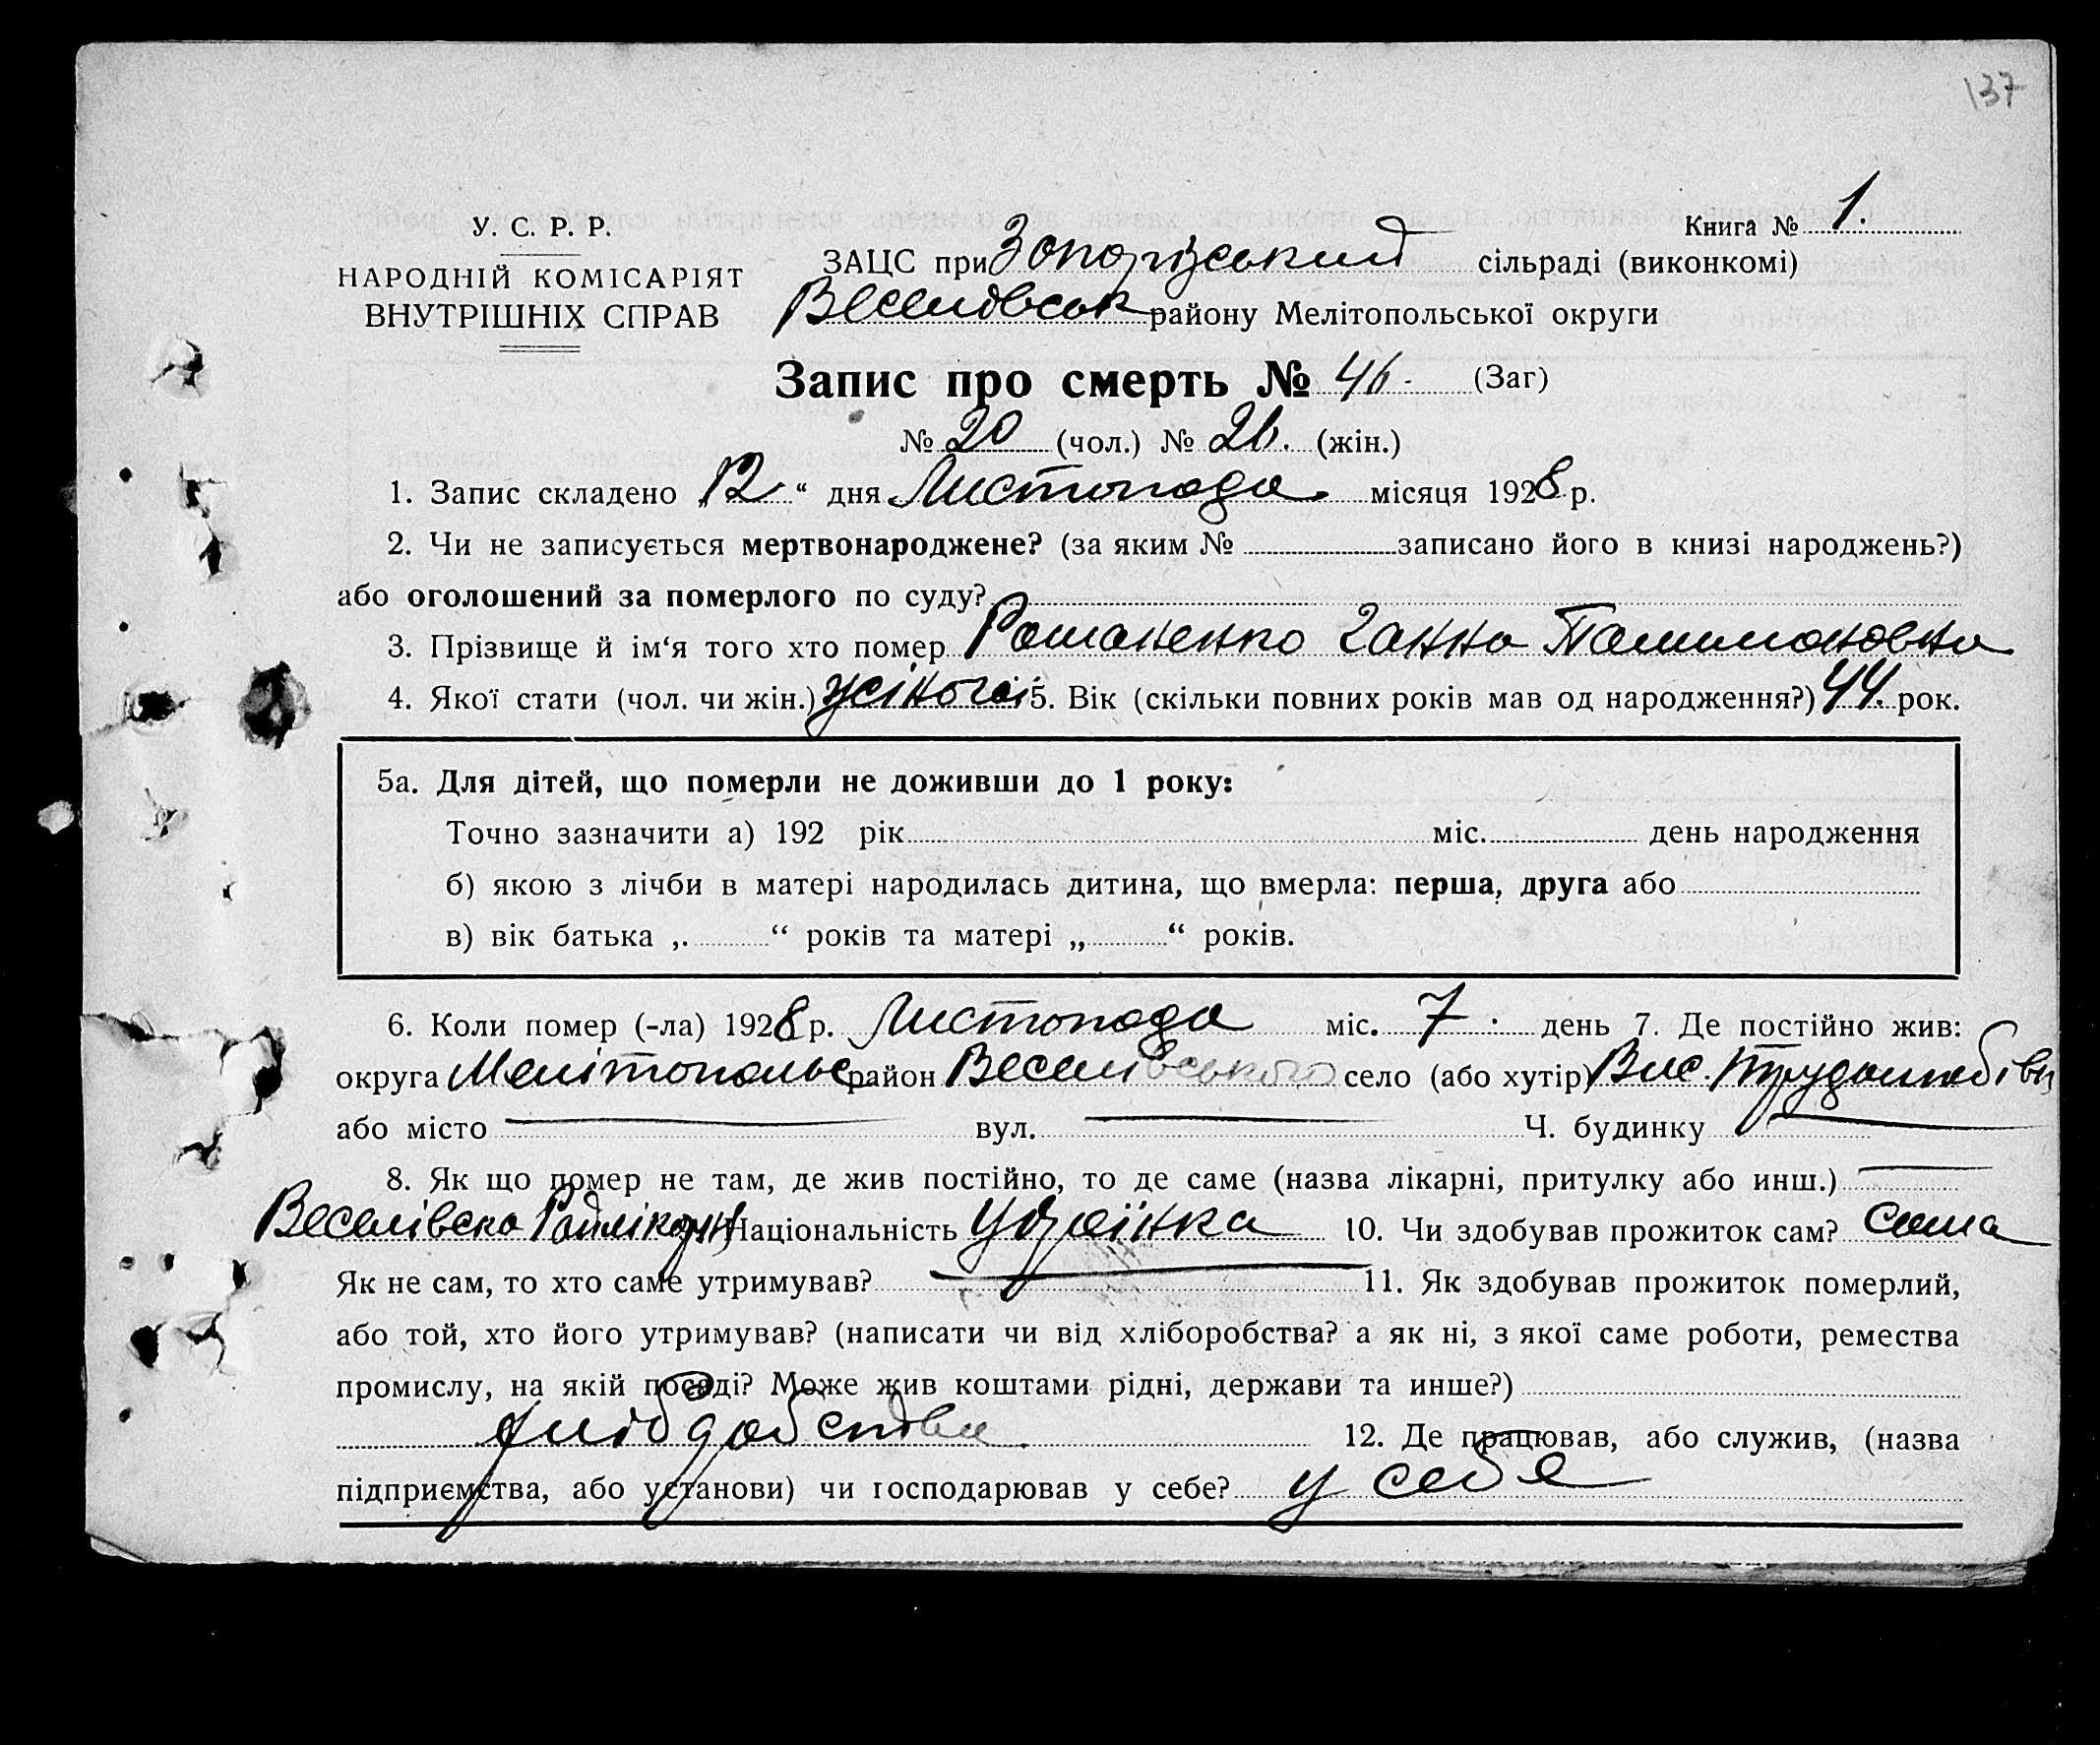 137
У. С. Р. Р.
НАРОДНІЙ КОМІСАРІЯТ
ВНУТРІШНІХ СПРАВ
Книга № 1.
ЗАЦС при Запорізький сільраді (виконкомі)
Веселівськ району Мелітопольської округи
Запис про смерть № 46. (Заг)
№ 20 (чол.) № 26. (жін.)
1. Запис складено „12“ дня Листопада місяця 1928 р.
2. Чи не записується мертвонароджене? (за яким № записано його в книзі народжень?)
або оголошений за померлого по суду?
3. Прізвище й ім‘я того хто помер Романенко Ганна
4. Якої стати (чол. чи жін.) жіночої 5. Вік (скільки повних років мав од народження?) 44. рок.
5а. Для дітей, що померли не доживши до 1 року:
Точно зазначити а) 192 рік міс. день народження
б) якою з лічби в матері народилась дитина, що вмерла: перша, друга або
в) вік батька „ “ років та матері „ “ років.
6. Коли помер (-ла) 1928 р. Листопада міс. 7. день 7. Де постійно жив:
округа Мелітопольс район Веселівського село (або хутір) Вис.
або місто вул. Ч. будинку
8. Як що помер не там, де жив постійно, то де саме (назва лікарні, притулку або инш.)
Веселівска Райлікарн Національність Украінка 10. Чи здобував прожиток сам? сама
Як не сам, то хто саме утримував? 11. Як здобував прожиток померлий,
або той, хто його утримував? (написати чи від хліборобства? а як ні, з якої саме роботи, ремества
промислу, на якій посаді? Може жив коштами рідні, держави та инше?)
12. Де працював, або служив, (назва
підприємства, або установи) чи господарював у себе? у себе